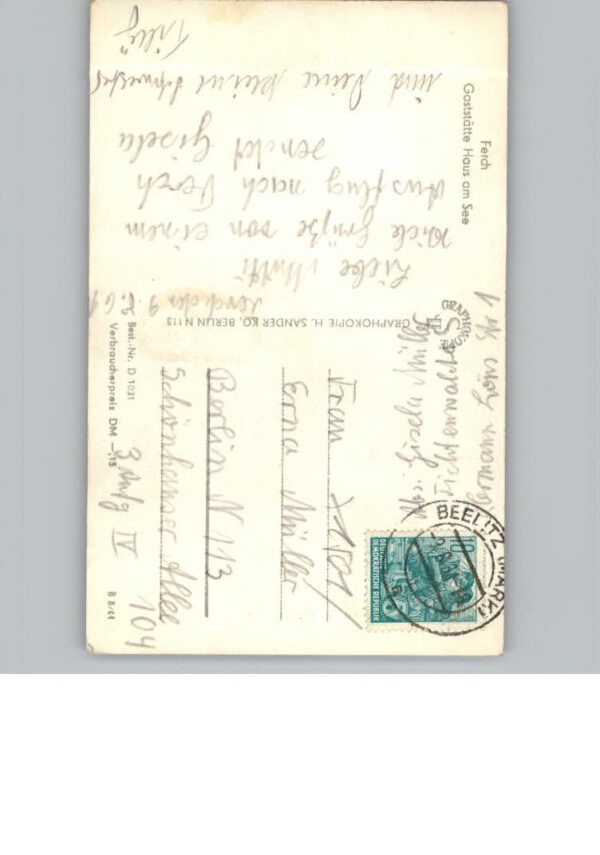 Ferch
Gaststätte Haus am See
Ferch den 9. 8. 61
Liebe Mutti
Viele Grüße von einem
Ausflug nach Ferch
sendet Gisela
und Deine kleine Schwester
GRAPHOKOPIE H. SANDER KG, BERLIN N 113
Best.-Nr. D 1031
Verbraucherpreis DM —,15
B 8/61
Abs. Gisela Müller
Fichtenwalde
BEELITZ (MARK)
10
DEUTSCHE
DEMOKRATISCHE REPUBLIK
Frau
Erna Müller
Berlin N 113
Schönhauser Allee
104
IV